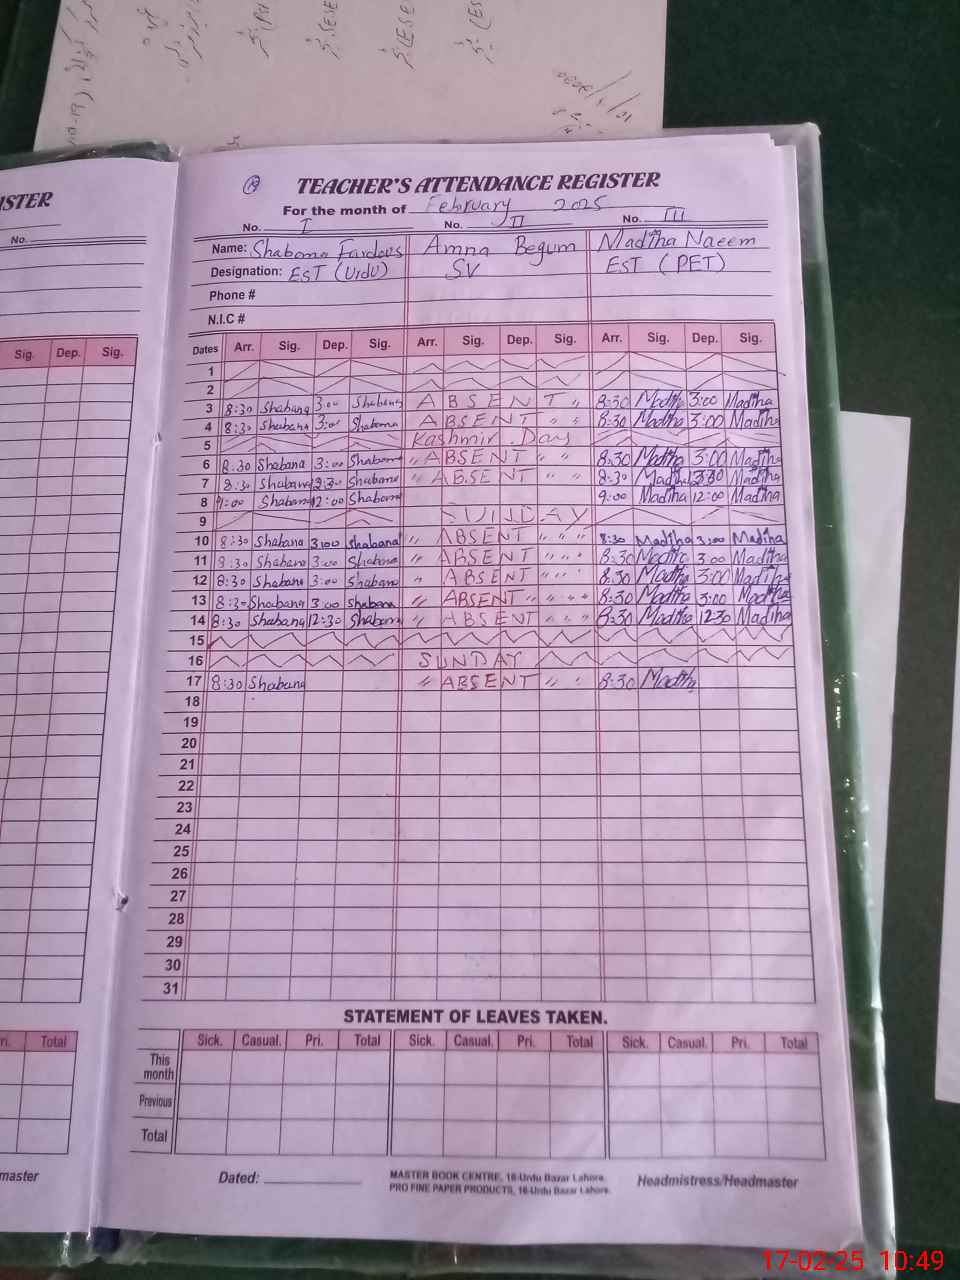 ISTER
No.
Sig. Dep. Sig.
19
TEACHER'S ATTENDANCE REGISTER
For the month of February 2025
No. I No. II No. III
Name: Shabana Fardous Amna Begum Madiha Naeem
Designation: EST (Urdu) SV EST (PET)
Phone #
N.I.C #
Dates Arr. Sig. Dep. Sig. Arr. Sig. Dep. Sig. Arr. Sig. Dep. Sig.
1
2
3 8:30 Shabana 3:00 Shabana ABSENT " 8:30 Madiha 3:00 Madiha
4 8:30 Shabana 3:00 Shabana ABSENT " " 8:30 Madiha 3:00 Madiha
5 Kashmir Day
6 8:30 Shabana 3:00 Shabana " ABSENT " " 8:30 Madiha 3:00 Madiha
7 8:30 Shabana 12:30 Shabana " ABSENT " " 8:30 Madiha Madiha
8 9:00 Shabana 12:00 Shabana 9:00 Madiha 12:00 Madiha
9 SUNDAY
10 8:30 Shabana 3:00 Shabana " ABSENT " " " 8:30 Madiha 3:00 Madiha
11 8:30 Shabana 3:00 Shabana " ABSENT " " " 8:30 Madiha 3:00 Madiha
12 8:30 Shabana 3:00 Shabana " ABSENT " " " 8:30 Madiha 3:00 Madiha
13 8:30 Shabana 3:00 Shabana " ABSENT " " " " 8:30 Madiha 3:00 Madiha
14 8:30 Shabana 12:30 Shabana " ABSENT " " " 8:30 Madiha 12:30 Madiha
15
16 SUNDAY
17 8:30 Shabana " ABSENT " " 8:30 Madiha
18
19
20
21
22
23
24
25
26
27
28
29
30
31
STATEMENT OF LEAVES TAKEN.
ri. Total
Sick. Casual. Pri. Total Sick. Casual. Pri. Total Sick. Casual. Pri. Total
This month
Previous
Total
master
Dated: MASTER BOOK CENTRE, 16-Urdu Bazar Lahore. Headmistress/Headmaster
PRO FINE PAPER PRODUCTS, 16-Urdu Bazar Lahore.
17-02-25 10:49